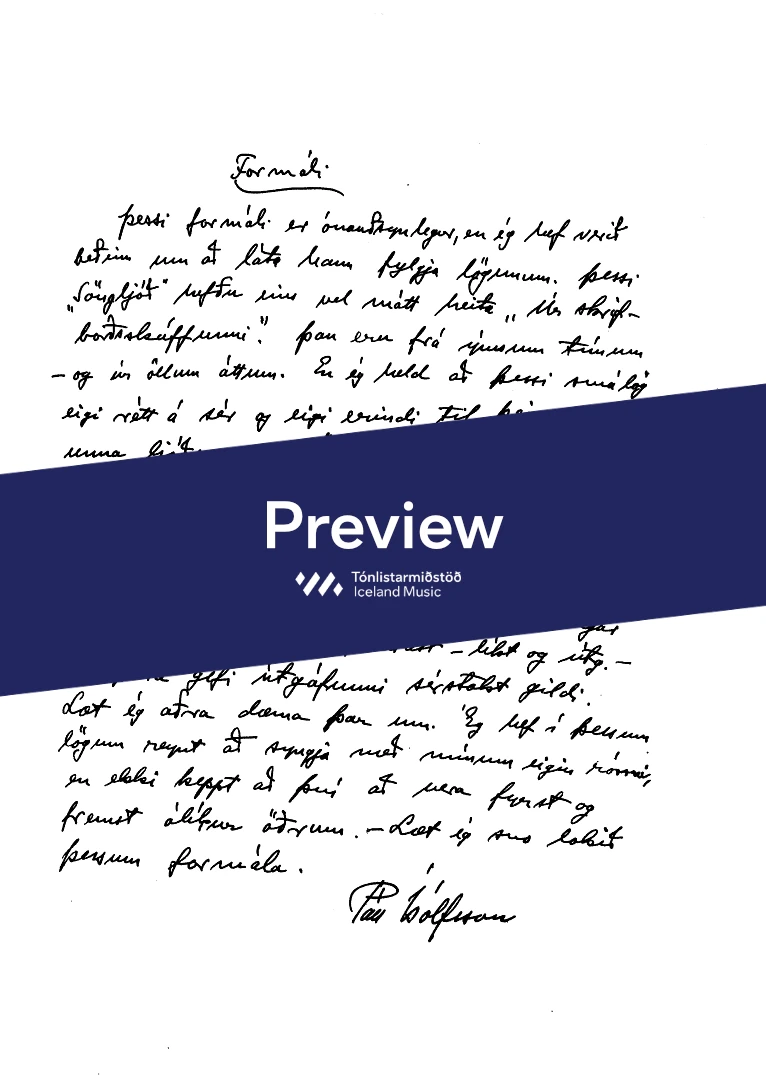 Formáli
Þessi formáli er ónauðsynlegur, en ég hef verið
beðinn um að láta hann fylgja lögunum. Þessi
„Söngljóð" hefðu eins vel mátt heita „Úr skrif-
borðsskúffunni". Þau eru frá ýmsum tímum
– og úr öllum áttum. En ég held að þessi smálög
eigi rétt á sér og eigi erindi til
unna
Preview
Tónlistarmiðstöð
Iceland Music
– líkt og útg. –
gefi útgáfunni sérstakt gildi.
Læt ég aðra dæma þar um. Ég hef í þessum
lögum reynt að syngja með mínum eigin rómi,
en ekki keppt að því að vera fyrst og
fremst ólíkur öðrum. – Læt ég svo lokið
þessum formála.
Páll Ísólfsson